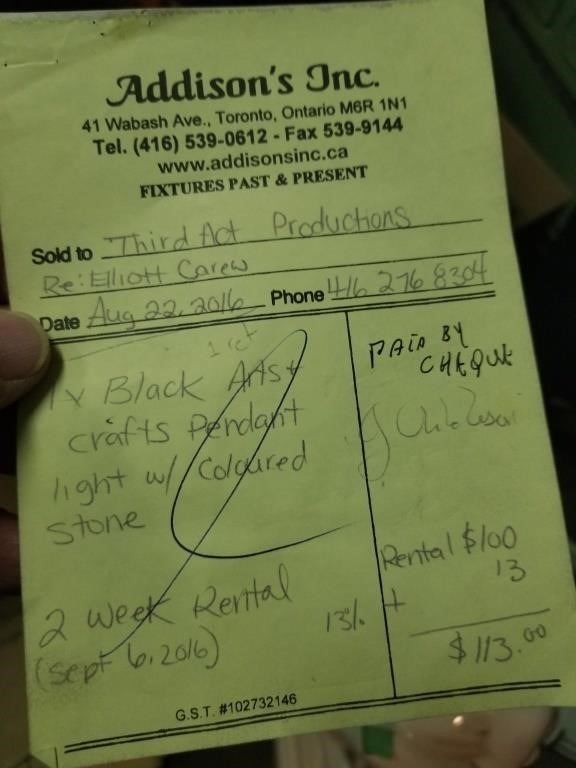 Addison's Inc.
41 Wabash Ave., Toronto, Ontario M6R 1N1
Tel. (416) 539-0612 - Fax 539-9144
www.addisonsinc.ca
FIXTURES PAST & PRESENT
Sold to Third Act Productions
Re: Elliott Carew
Date Aug 22, 2016 Phone 416 276 8304
PAID BY
CHEQUE
1x Black Arts +
crafts Pendant
light w/ Coloured
stone
Rental $100
13
2 week Rental
13% +
(sept 6, 2016)
$113.00
G.S.T. #102732146